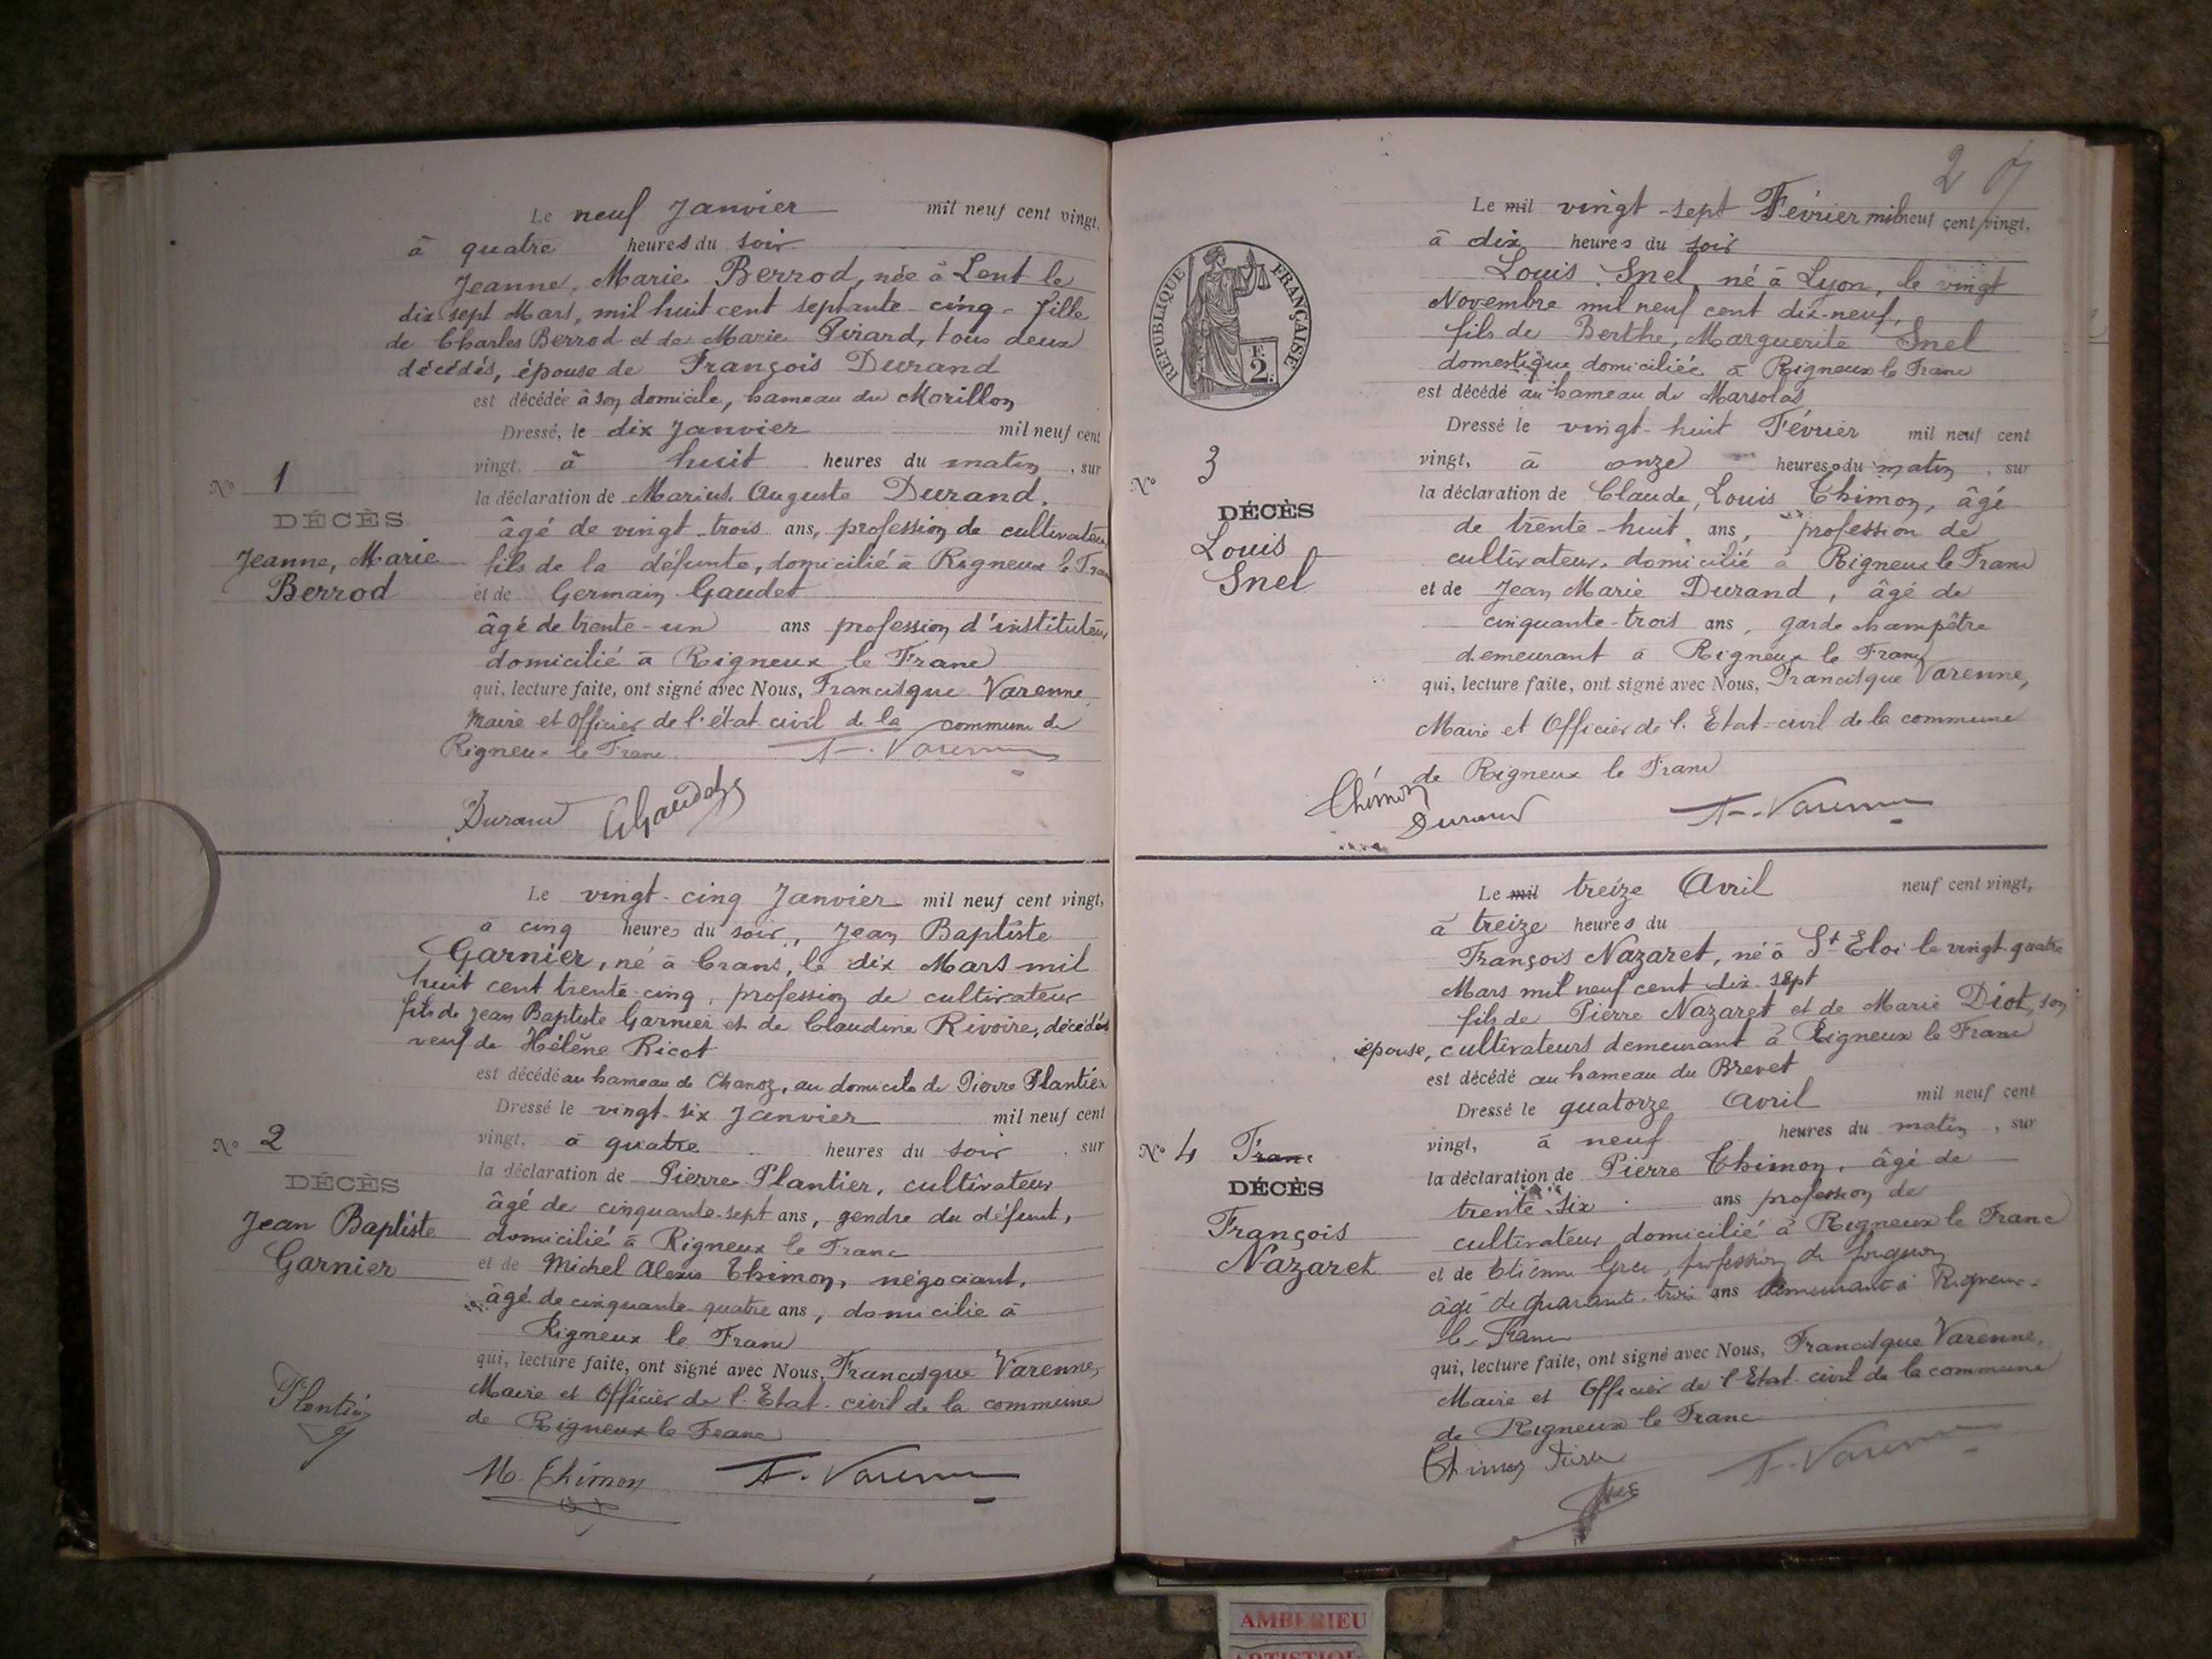 Le neuf Janvier mil neuf cent vingt,
à quatre heures du soir
Jeanne, Marie Berrod, née à Lent le
dix-sept Mars, mil huit cent septante-cinq - fille
de Charles Berrod et de Marie Pirard, tous deux
décédés, épouse de François Durand
est décédée à son domicile, hameau du Morillon
Dressé, le dix Janvier mil neuf cent
vingt, à huit heures du matin, sur
la déclaration de Marius Auguste Durand,
âgé de vingt-trois ans, profession de cultivateur
fils de la défunte, domicilié à Rigneux le Franc
et de Germain Gaudet
âgé de trente-un ans profession d'instituteur
domicilié à Rigneux le Franc
qui, lecture faite, ont signé avec Nous, Francisque Varenne
Maire et Officier de l'état civil de la commune de
Rigneux le Franc F. Varenne
Durand GGaudet
N° 1
DÉCÈS
Jeanne, Marie
Berrod
Le vingt-cinq Janvier mil neuf cent vingt,
à cinq heures du soir, Jean Baptiste
Garnier, né à Crans, le dix Mars mil
huit cent trente-cinq, profession de cultivateur
fils de Jean Baptiste Garnier et de Claudine Rivoire, décédés
veuf de Hélène Ricot
est décédé au hameau de Chanoz, au domicile de Pierre Plantier
Dressé le vingt-six Janvier mil neuf cent
vingt, à quatre heures du soir, sur
la déclaration de Pierre Plantier, cultivateur
âgé de cinquante-sept ans, gendre du défunt,
domicilié à Rigneux le Franc
et de Michel Alexis Thimon, négociant,
âgé de cinquante-quatre ans, domicilié à
Rigneux le Franc
qui, lecture faite, ont signé avec Nous, Francisque Varenne,
Maire et Officier de l'Etat-civil de la commune
de Rigneux le Franc
Plantier
M. Thimon F. Varenne
N° 2
DÉCÈS
Jean Baptiste
Garnier
27
Le mil vingt-sept Février mil neuf cent vingt,
à dix heures du soir
Louis Snel, né à Lyon, le vingt
Novembre mil neuf cent dix-neuf,
fils de Berthe, Marguerite Snel
domestique domiciliée à Rigneux le Franc
est décédé au hameau de Marsolas
Dressé le vingt-huit Février mil neuf cent
vingt, à onze heures du matin, sur
la déclaration de Claude, Louis Thimon, âgé
de trente-huit ans, profession de
cultivateur, domicilié à Rigneux le Franc
et de Jean Marie Durand, âgé de
cinquante-trois ans, garde champêtre
demeurant à Rigneux le Franc
qui, lecture faite, ont signé avec Nous, Francisque Varenne,
Maire et Officier de l'Etat-civil de la commune
de Rigneux le Franc
Thimon
Durand F. Varenne
RÉPUBLIQUE FRANÇAISE
F.
2.
N° 3
DÉCÈS
Louis
Snel
Le mil treize Avril neuf cent vingt,
à treize heures du
François Nazaret, né à St Eloi le vingt-quatre
Mars mil neuf cent dix-sept
fils de Pierre Nazaret et de Marie Diot, son
épouse, cultivateurs demeurant à Rigneux le Franc
est décédé au hameau du Brevet
Dressé le quatorze Avril mil neuf cent
vingt, à neuf heures du matin, sur
la déclaration de Pierre Thimon, âgé de
trente-six ans profession de
cultivateur, domicilié à Rigneux le Franc
et de Etienne profession de
âgé de quarante-trois ans demeurant à Rigneux-
le-Franc
qui, lecture faite, ont signé avec Nous, Francisque Varenne,
Maire et Officier de l'Etat-civil de la commune
de Rigneux le Franc
Thimon Pierre F. Varenne
N° 4 Franc
DÉCÈS
François
Nazaret
AMBERIEU